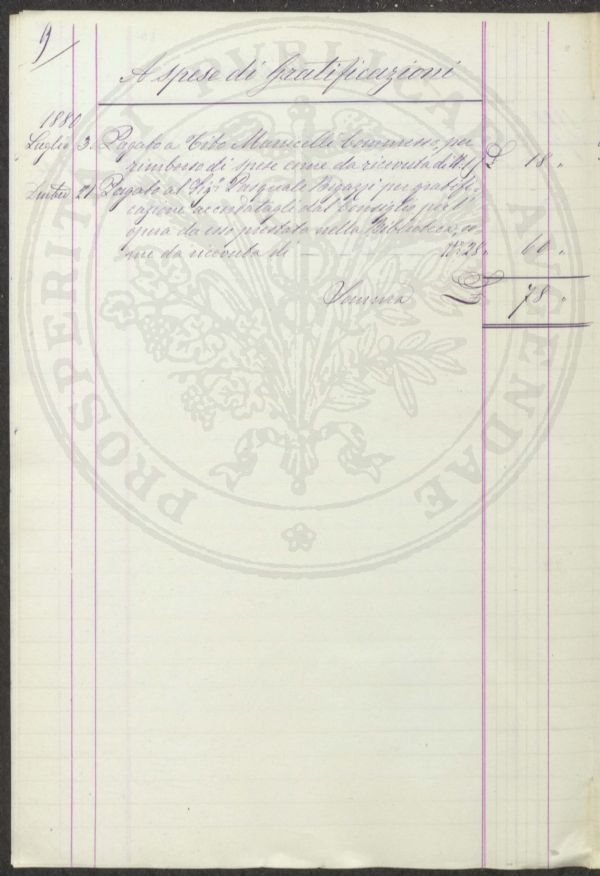 9
A spese di Gratificazioni
1880
Luglio 3 Pagato a Tito Marucelli Commesso, per
rimborso di spese come da ricevuta di N. 17 £ 18 "
21 Pagato al Sig.r Pasquale per gratifi-
cazione accordatagli dal Consiglio per l'
opera da esso prestata nella Biblioteca, co-
me da ricevuta di N.° 28 " 60 "
Somma £ 78 "
PROSPERITATI PUBLICAE AUGENDAE